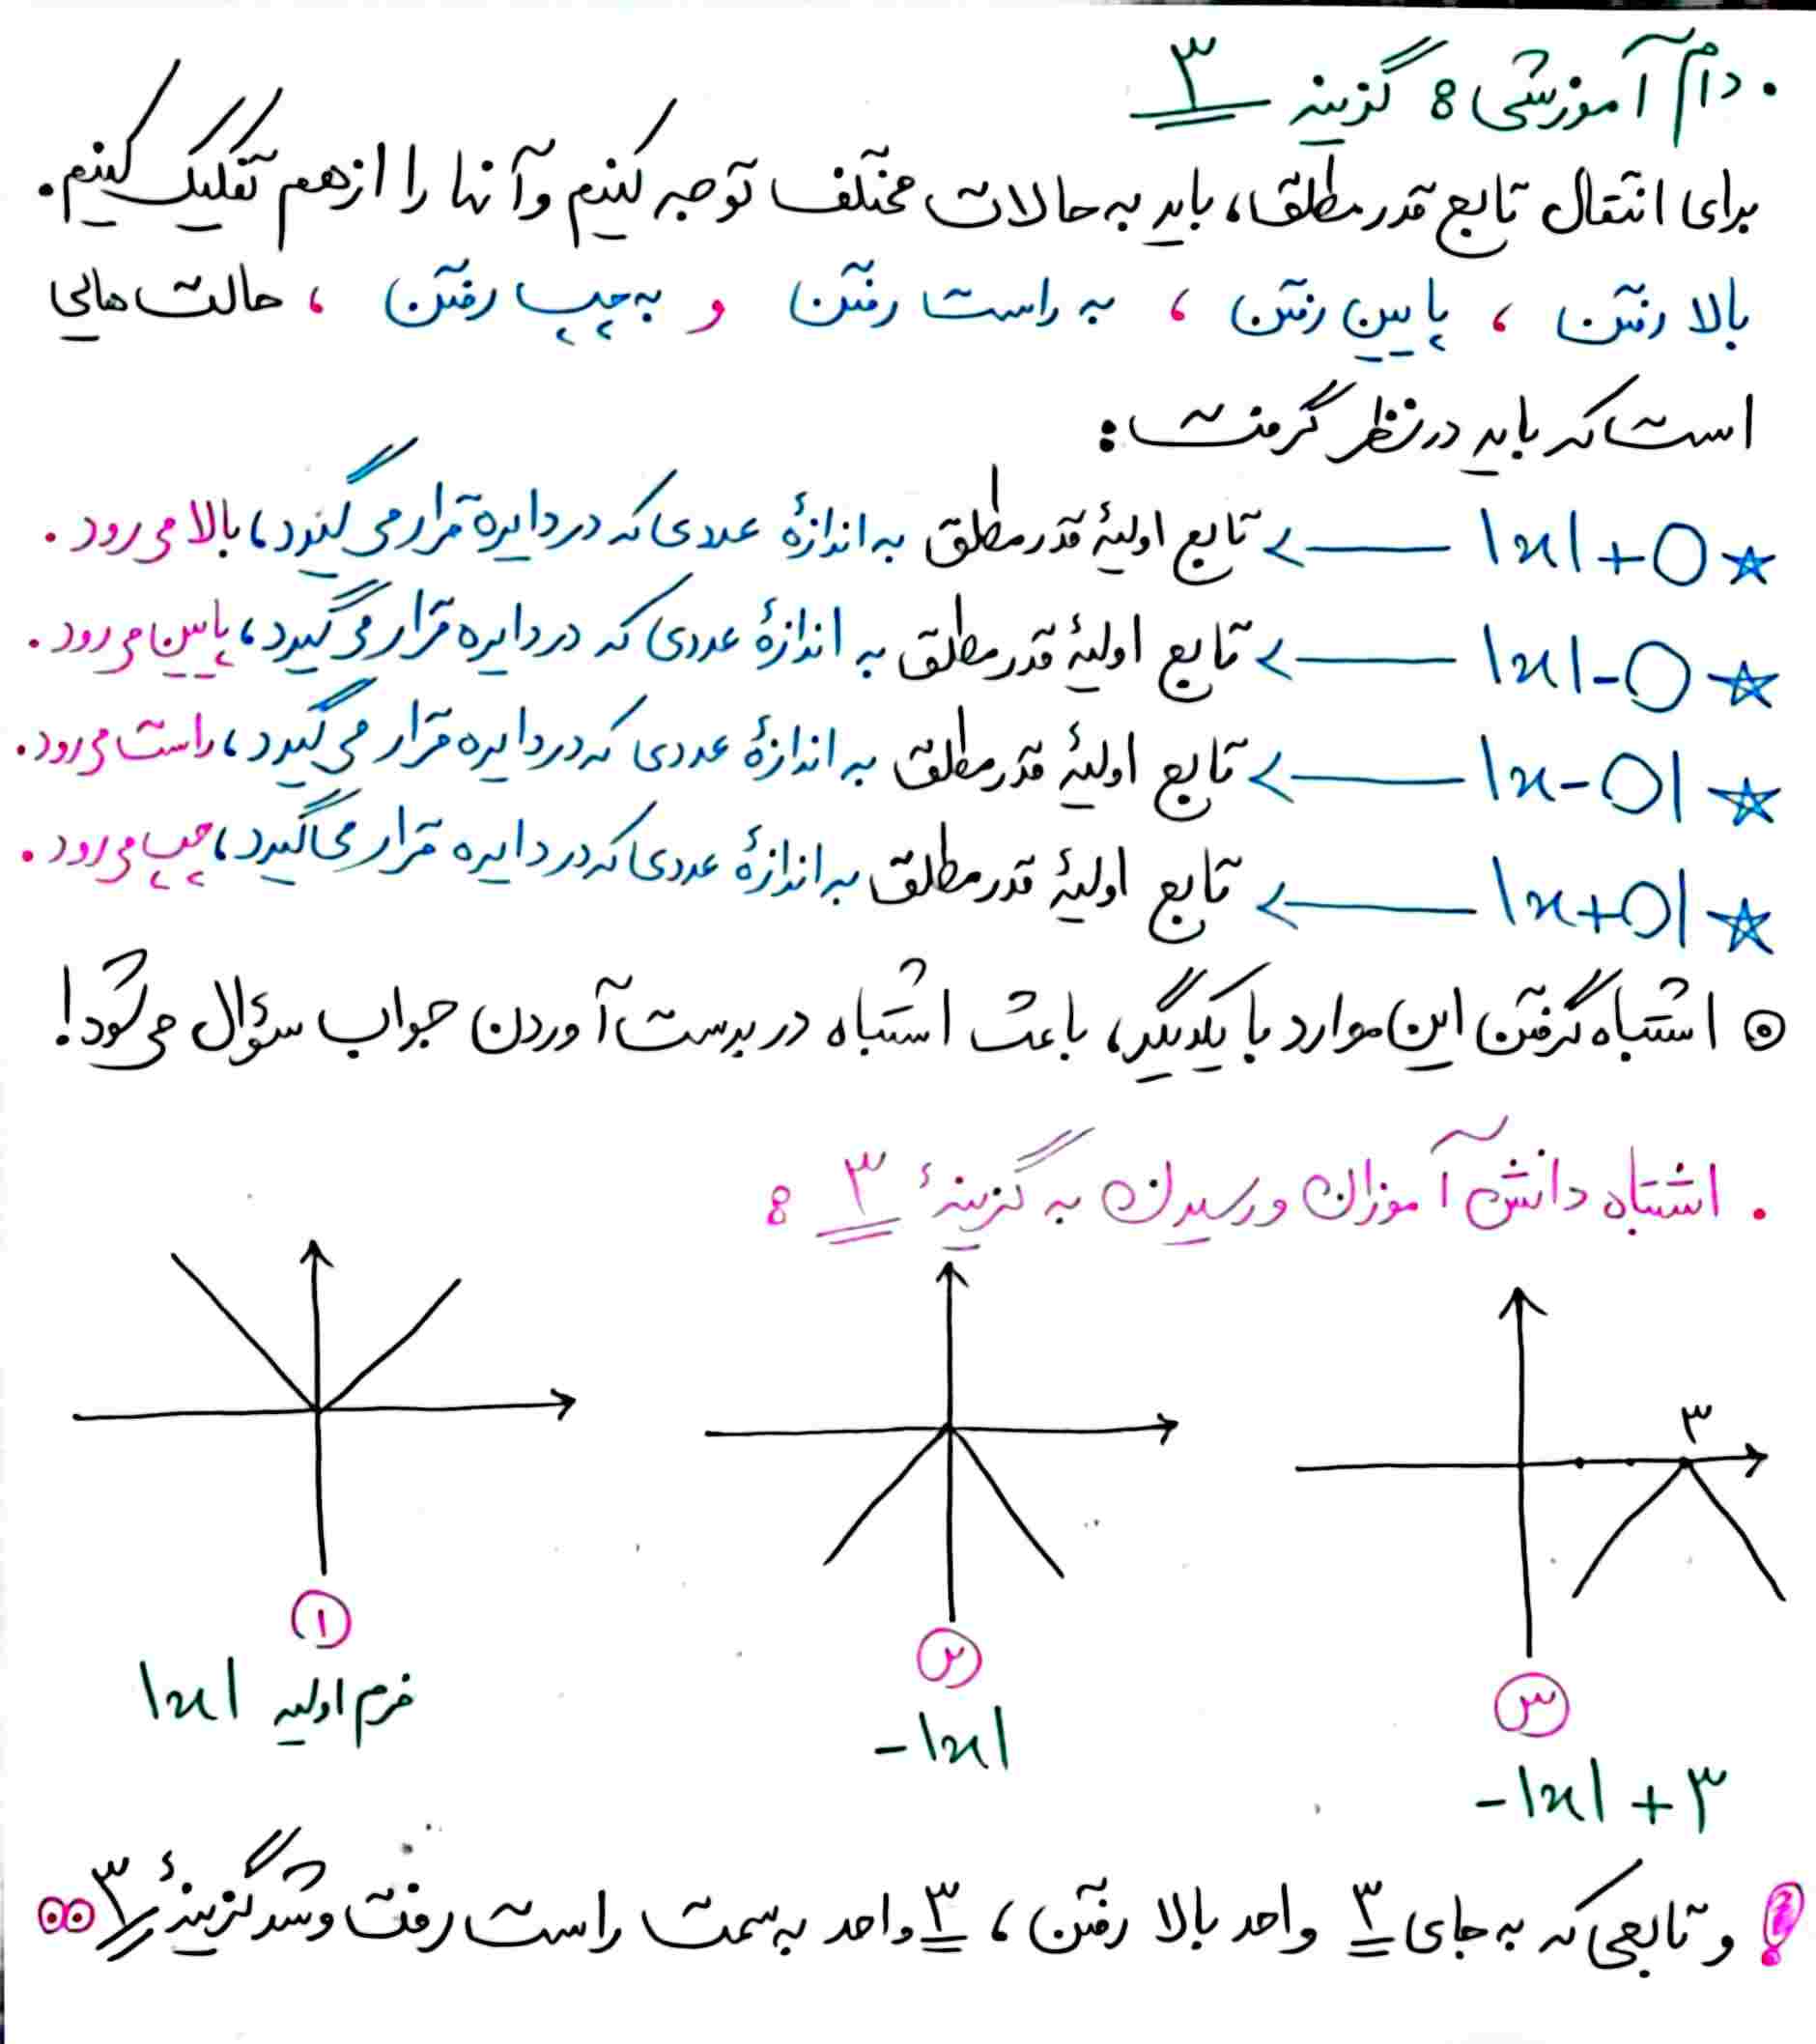 . دام آموزشی : گزینه ۳
برای انتقال تابع قدرمطلق، باید به حالات مختلف توجه کنیم و آنها را از هم تفکیک کنیم.
بالا رفتن ، پایین رفتن ، به راست رفتن و به چپ رفتن ، حالت هایی
است که باید در نظر گرفت :
☆ |x|+○ → تابع اولیهٔ قدرمطلق به اندازهٔ عددی که در دایره قرار می گیرد، بالا می رود .
☆ |x|-○ → تابع اولیهٔ قدرمطلق به اندازهٔ عددی که در دایره قرار می گیرد، پایین می رود .
☆ |x-○| → تابع اولیهٔ قدرمطلق به اندازهٔ عددی که در دایره قرار می گیرد، راست می رود.
☆ |x+○| → تابع اولیهٔ قدرمطلق به اندازهٔ عددی که در دایره قرار می گیرد، چپ می رود .
اشتباه گرفتن این موارد با یکدیگر، باعث اشتباه در بدست آوردن جواب سؤال می شود!
. اشتباه دانش آموزان و رسیدن به گزینهٔ ۳ :
۳
۱
۲
۳
فرم اولیه |x|
-|x|
-|x| + ۳
و تابعی که به جای ۳ واحد بالا رفتن، ۳ واحد به سمت راست رفت و شد گزینهٔ ۳